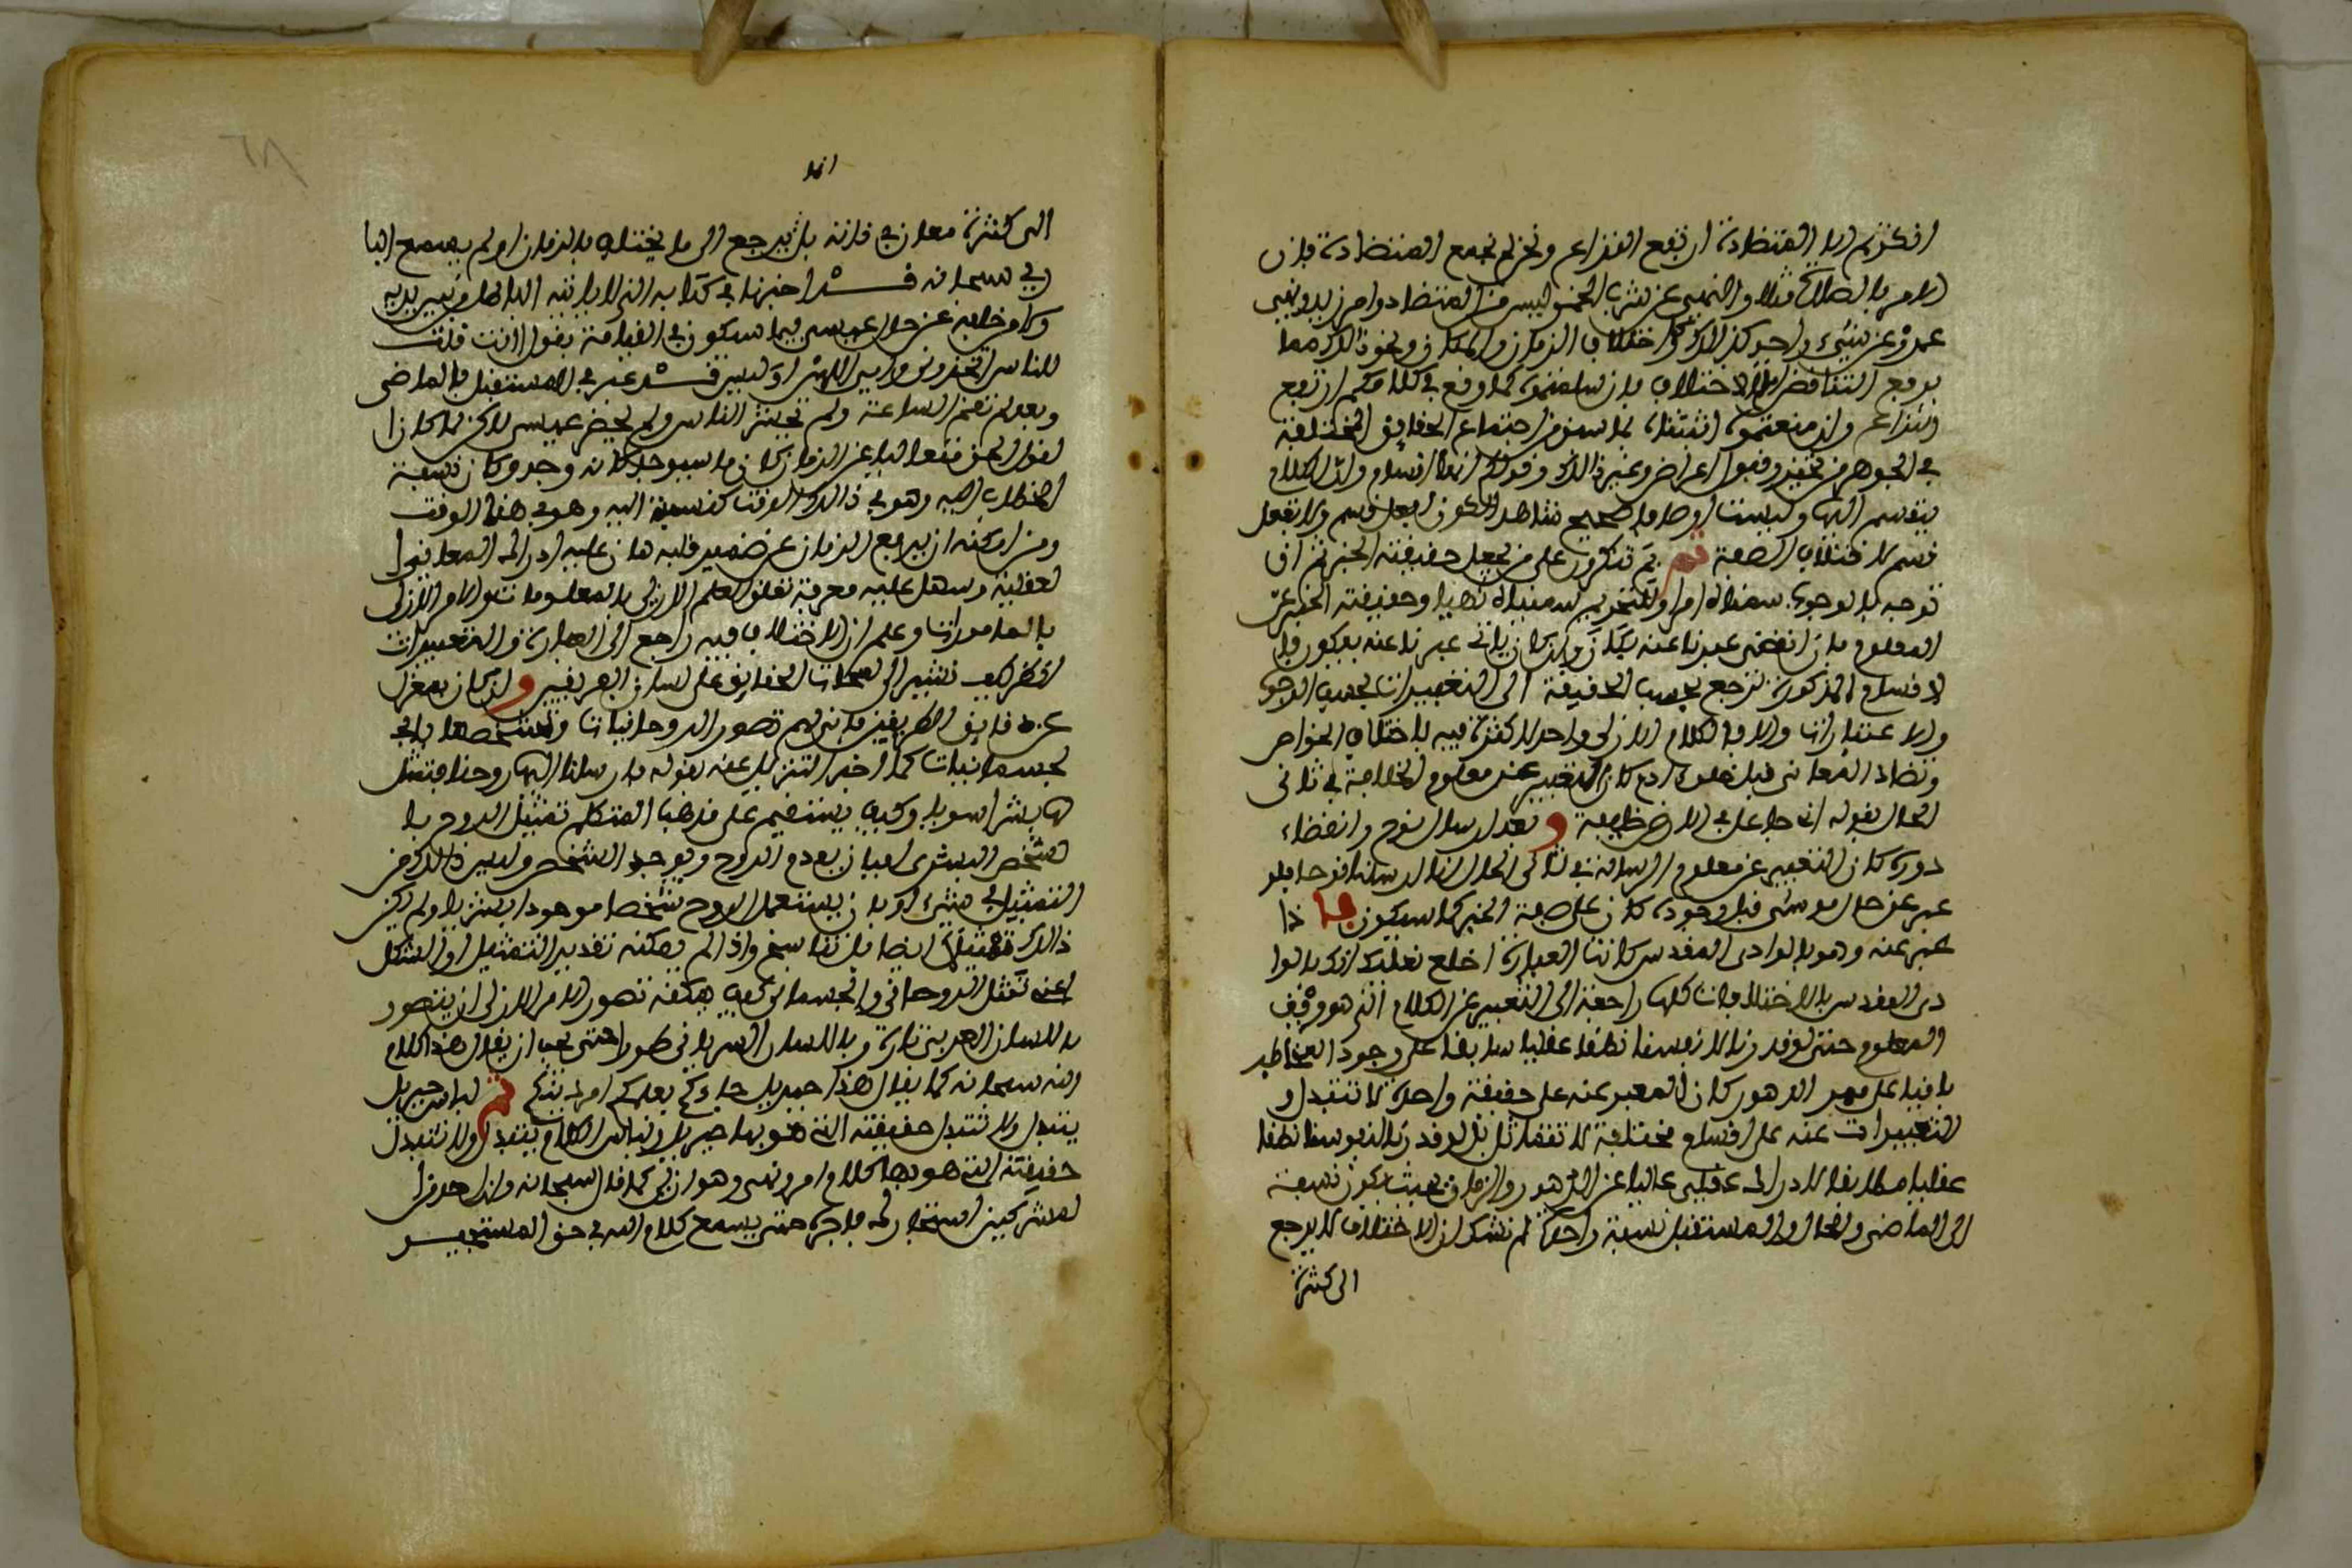 انكرتم الا المتضادة ارتفع النزاع ونحن لم نجمع المتضادة فان
الامر بالصلاة مثلا والنهي عن شرب الخمر ليس من المتضاد وامر زيد ونهي
عمرو عن شيء واحد كذلك واختلاف الزمان والمكان ونحو ذلك مما
يرفع التناقض والاختلاف فان سلمتموه كما وقع في كلامكم ارتفع
النزاع وان منعتموه اثبتناه بما سبق من اجتماع الحقائق المختلفة
في الجوهر من تحيز وقبول اعراض وغير ذلك وقولكم انها اقسام وان الكلام
ينقسم اليها وليست اوصافا صحيح شاهدا لكون افعل قسم ولا تفعل
قسم لاختلاف الصيغة ثم بم تنكرون على من يجعل حقيقته الخبر ثم ان
توجه بالوجوب سميناه امرا او بالتحريم سميناه نهيا وحقيقته الخبر عن
المعلوم فان انقضى عبرنا عنه بكان وان كان ياتي عبرنا عنه بيكون فا
لاقسام المذكورة ترجع بحسب الحقيقة الى التعبيرات بحسب الوجوه
والاعتبارات والا فالكلام الازلي واحد لا كثرة فيه باختلاف الخواص
وتضاد المعاني قبل خلق ادم كان التعبير عن معلوم الخلافة في ثاني
الحال بقوله اني جاعل في الارض خليفة وبعد ارسال نوح وانقضاء
دوره كان التعبير عن معلوم الرسالة في ثاني الحال انا ارسلنا نوحا فلو
عبر عن حال موسى قبل وجوده كان على صيغة الخبر كما سيكون فاذا
عبر عنه وهو بالوادي المقدس كانت العبارة اخلع نعليك انك بالوا
دي المقدس فالاختلافات كلها راجعة الى التعبير عن الكلام الذي هو وفق
المعلوم حتى لو قدرنا لانفسنا نطقا عقليا سابقا على وجود المخاطب
باقيا على ممر الدهور كان المعبر عنه على حقيقة واحدة لا تتبدل و
التعبيرات عنه على اقسام مختلفة لا تتماثل بل لو قدرنا لنفوسنا نطقا
عقليا مطابقا لادراك عقلي عاليا عن الدهور والزمان بحيث يكون نسبته
الى الماضي والحال والمستقبل نسبة واحدة لم نشك ان الاختلاف لا يرجع
الى كثرة
الى كثرة معان في ذاته بل يرجع الى ما يختلف بالزمان او لم يسمع البا
ري سبحانه قد اخبرنا في كتابه الذي لا ياتيه الباطل من بين يديه
ولا من خلفه عن حال عيسى فيما سيكون في القيامة يقول اانت قلت
للناس اتخذوني وامي الهين اوليس قد عبر في المستقبل بالماضي
وبعد لم تقم الساعة ولم يحشر الناس ولم يحضر عيسى لكن لما كان ا
لقول الحق متعاليا عن الزمان كان ما سيوجد كانه وجد وكان نسبة
الخطاب اليه وهو في ذلك الوقت كنسبته اليه وهو في هذا الوقت
ومن امكنه ان يرفع الزمان عن ضمير قلبه هان عليه ادراك المعاني ا
لعقلية وسهل عليه معرفة تعلق العلم الازلي بالمعلومات والامر الازلي
بالمامورات وعلم ان الاختلاف فيه راجع الى العبارة والتعبيرات
الى محلات الحقائق على لسان الفريقين وان كان بمعزل
عن طريقين فانى لهم تصور الروحانيات وتشخصها بالج
لجسمانيات كما اخبر التنزيل عنه بقوله فارسلنا اليها روحنا فتمثل
لها بشرا سويا وكيف يستقيم على مذهب المتكلم تمثيل الروح با
لشخص البشري ابان يعدم الروح ويوجد الشخص وليس ذلك من
التمثيل في شيء او بان يستعمل الروح شخصا موجودا بشريا ولم يكن
ذلك تمثيلا ايضا بل تناسخ واذا لم يمكنه تقدير التمثيل او التشكل
اعني تمثل الروحاني بالجسماني كيف يمكنه تصور الامر الازلي ان يتصور
باللسان العربي تارة وباللسان السرياني طورا حتى يجب ان يقال هذا كلام
الله سبحانه كما يقال هذا جبريل جاءكم يعلمكم امر دينكم ثم لباس جبريل
يتبدل ولا تتبدل حقيقته التي هو بها جبريل ولباس الكلام يتبدل ولا تتبدل
حقيقته التي هو بها كلام امر ونهي وهو ازلي كما قال سبحانه وان احد من ا
لمشركين استجارك فاجره حتى يسمع كلام الله في حق المستجير